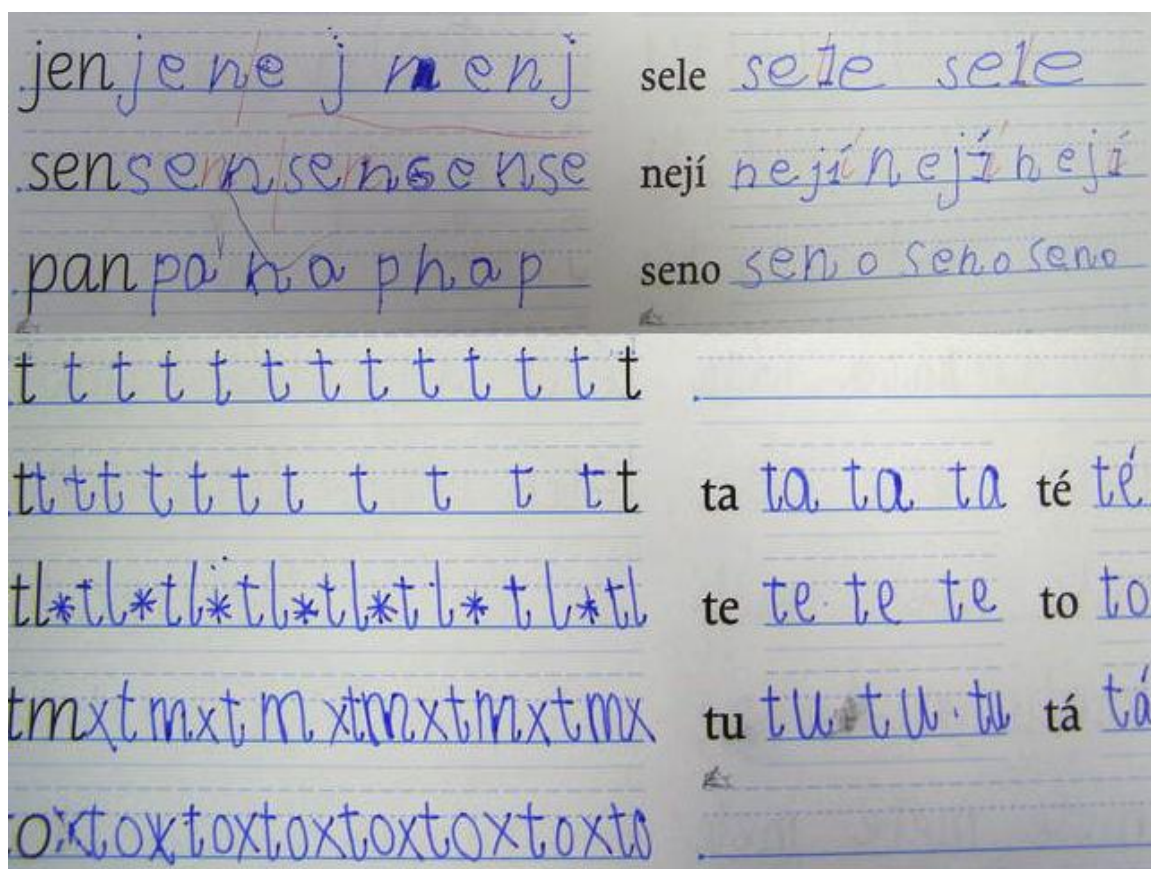 jen j e n e j n e n j
sen s e n s e n s e n s e
pan p a n a p n a p
sele sele sele
nejí nejí nejí nejí
seno seno seno seno
t t t t t t t t t t t t t
t t t t t t t t t t t t t
tl*tl*tl*tl*tl*tl*tl*tl
tmxtmxtmxtmxtmxtmx
oxtoxtoxtoxtoxtoxtoxto
ta ta ta ta té té
te te te te to to
tu tu tu tu tá tá